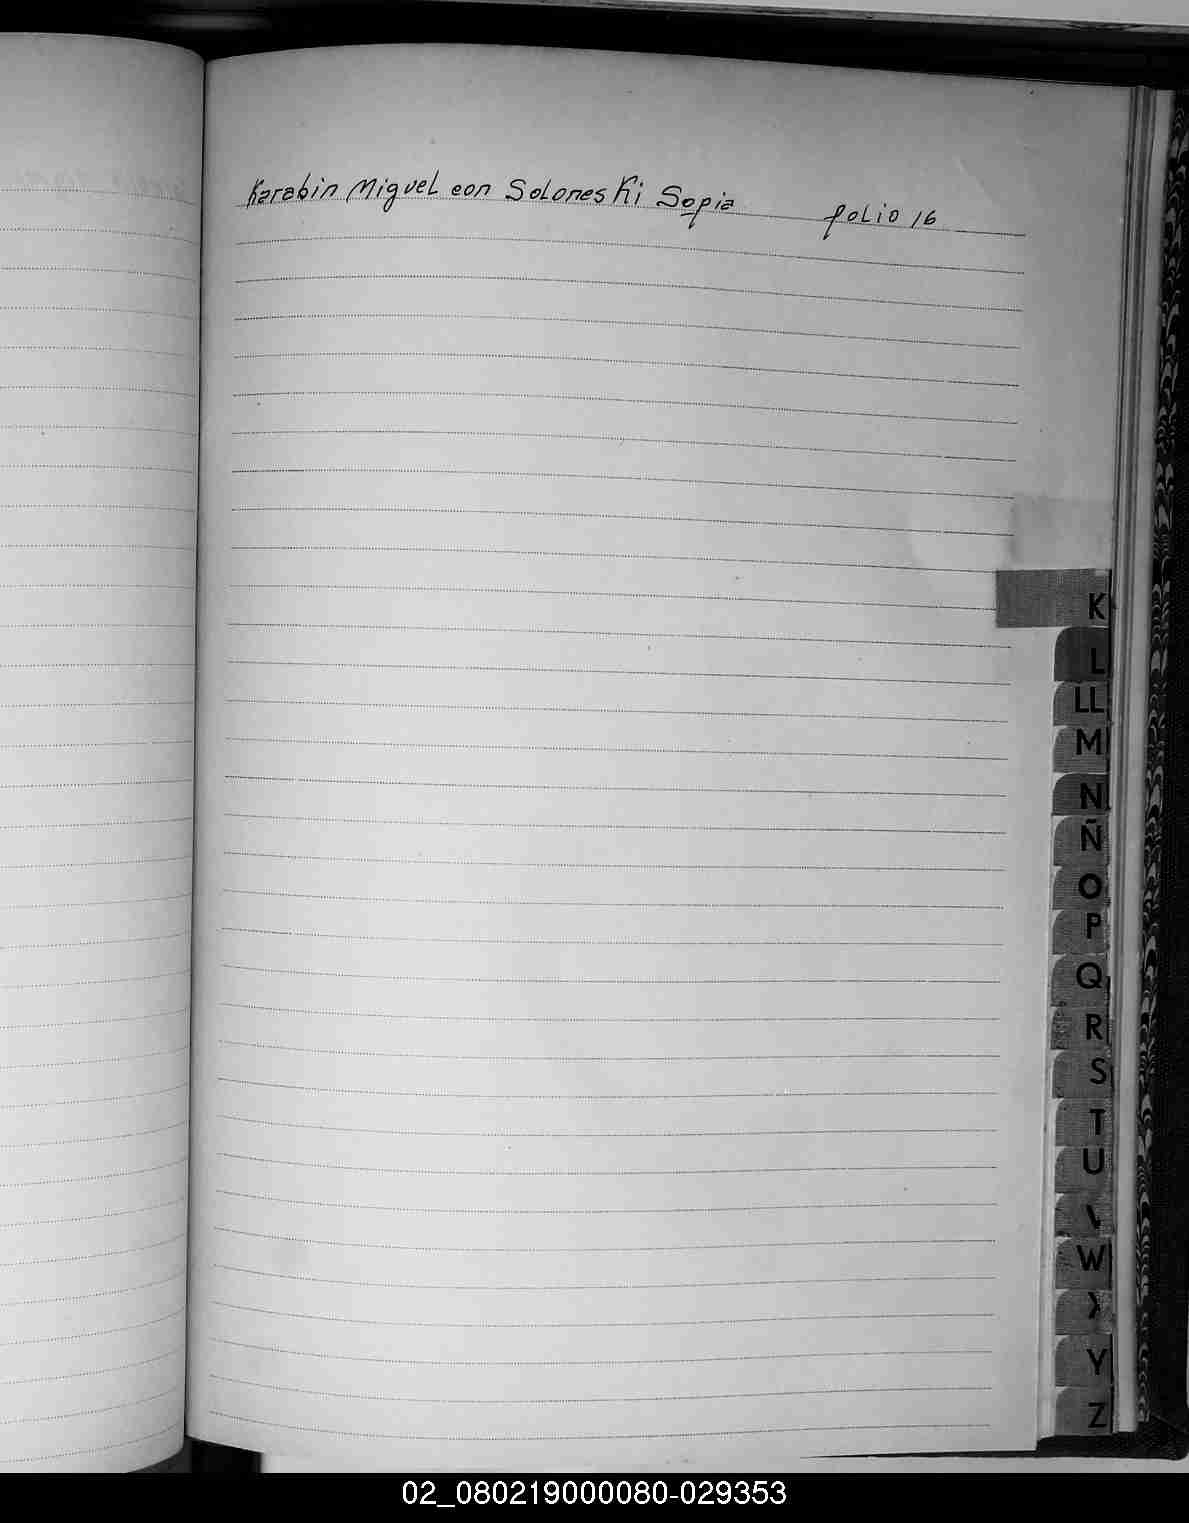 Karabin Miguel con Soloneski Sopia folio 16
K
L
LL
M
N
Ñ
O
P
Q
R
S
T
U
W
Y
Z
02_080219000080-029353